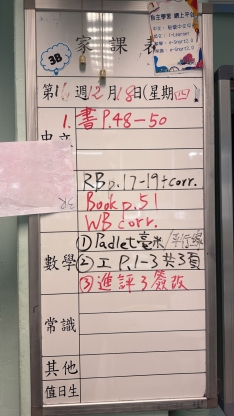 家課表
3B
自主學習 網上平台
第1 週12月18日(星期四)
1. 書 P.48-50
中文
RB p.17-19 + corr.
Book p.51
WB corr.
① Padlet 毫米/平行線
數學 ② 工 P.1-3 共3頁
③ 進評3簽改
常識
其他
值日生